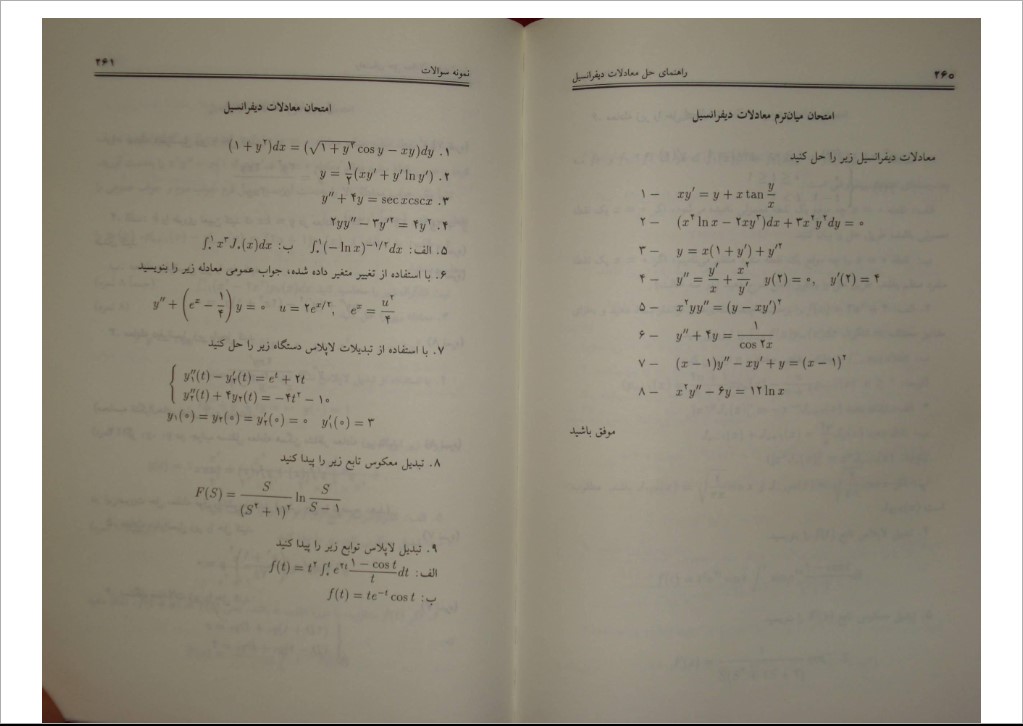 ۲۶۰ راهنمای حل معادلات دیفرانسیل
امتحان میان‌ترم معادلات دیفرانسیل
معادلات دیفرانسیل زیر را حل کنید
۱ – xy′ = y + x tan y/x
۲ – (x² ln x − ۲xy³)dx + ۳x²y²dy = ۰
۳ – y = x(۱ + y′) + y′²
۴ – y″ = y′/x + x²/y′ y(۲) = ۰, y′(۲) = ۴
۵ – x²yy″ = (y − xy′)²
۶ – y″ + ۴y = ۱/cos ۲x
۷ – (x − ۱)y″ − xy′ + y = (x − ۱)²
۸ – x²y″ − ۶y = ۱۲ ln x
موفق باشید
نمونه سوالات ۲۶۱
امتحان معادلات دیفرانسیل
۱. (۱ + y²)dx = (√۱ + y² cos y − xy)dy
۲. y = ۱/۲(xy′ + y′ ln y′)
۳. y″ + ۴y = sec x csc x
۴. ۲yy″ − ۳y′² = ۴y²
۵. الف: ∫₀¹(− ln x)^−۱/۲ dx ب: ∫₀¹ x³J₀(x)dx
۶. با استفاده از تغییر متغیر داده شده، جواب عمومی معادله زیر را بنویسید
y″ + (eˣ − ۱/۴) y = ۰ u = ۲e^x/۲, eˣ = u²/۴
۷. با استفاده از تبدیلات لاپلاس دستگاه زیر را حل کنید
y₁″(t) − y₂′(t) = eᵗ + ۲t
y₂″(t) + ۴y₂(t) = −۴t² − ۱۰
y₁(۰) = y₂(۰) = y₂′(۰) = ۰ y₁′(۰) = ۳
۸. تبدیل معکوس تابع زیر را پیدا کنید
F(S) = S/(S² + ۱)² ln S/S − ۱
۹. تبدیل لاپلاس توابع زیر را پیدا کنید
الف: f(t) = t² ∫₀ᵗ e^۲t ۱ − cos t/t dt
ب: f(t) = te^−t cos t